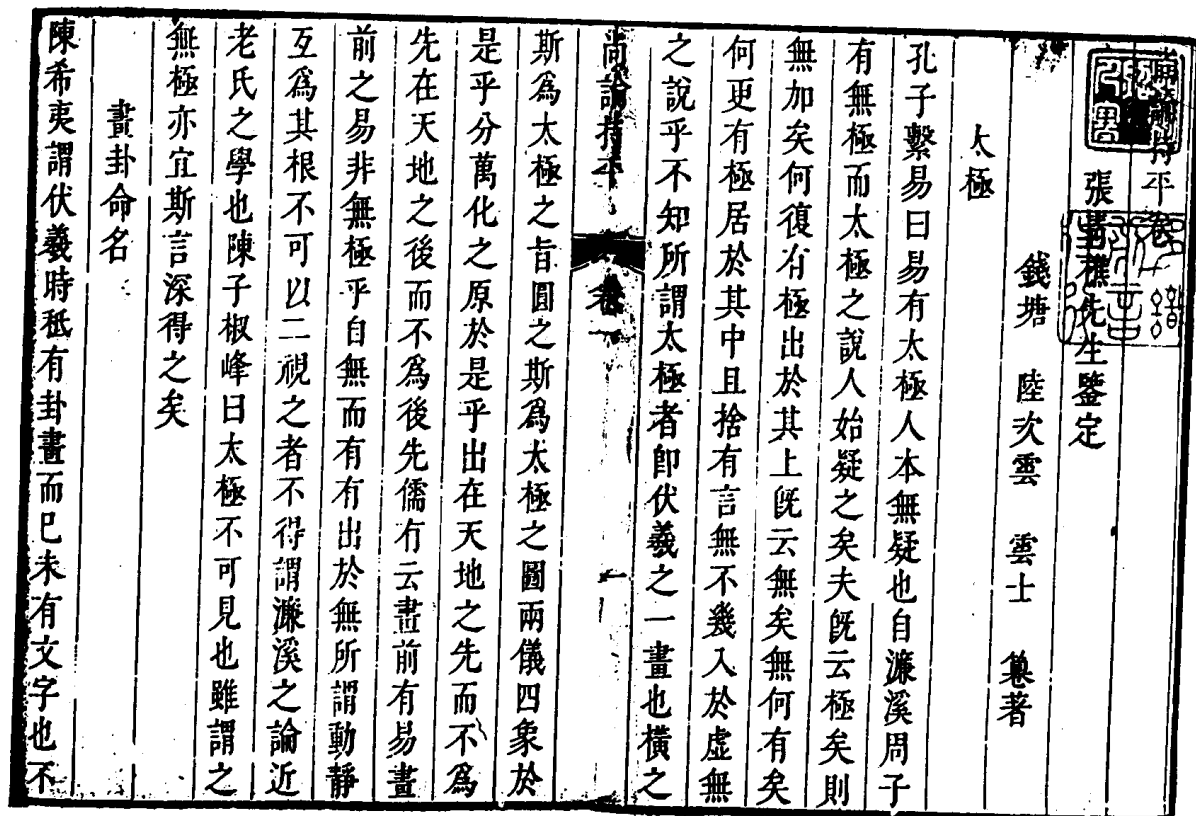 尚論持平卷一
張先生鑒定
錢塘 陸次雲 雲士 纂著
太極
孔子繫易曰易有太極人本無疑也自濂溪周子
有無極而太極之說人始疑之矣夫旣云極矣則
無加矣何復有極出於其上旣云無矣無何有矣
何更有極居於其中且捨有言無不幾入於虛無
之說乎不知所謂太極者卽伏羲之一畫也橫之
尚論持平 卷一 一
斯爲太極之旨圓之斯爲太極之圖兩儀四象於
是乎分萬化之原於是乎出在天地之先而不爲
先在天地之後而不爲後先儒有云畫前有易畫
前之易非無極乎自無而有有出於無所謂動靜
互爲其根不可以二視之者不得謂濂溪之論近
老氏之學也陳子椒峰曰太極不可見也雖謂之
無極亦宜斯言深得之矣
畫卦命名
陳希夷謂伏羲時秪有卦畫而已未有文字也不